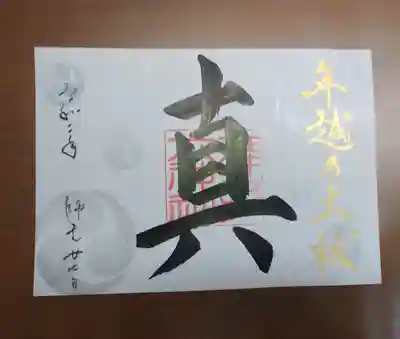 年越乃大祓
真
令和二年
師走廿七日